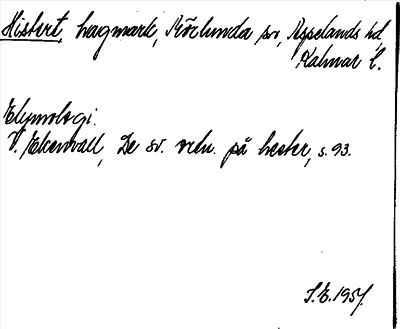 Hisbert, hagmark, Förlunda sn, Aspelands hd,
Kalmar l.
Etymologi.
V. Ekenvall, De sv. ortn. på hester, s. 93.
S.E. 1957.